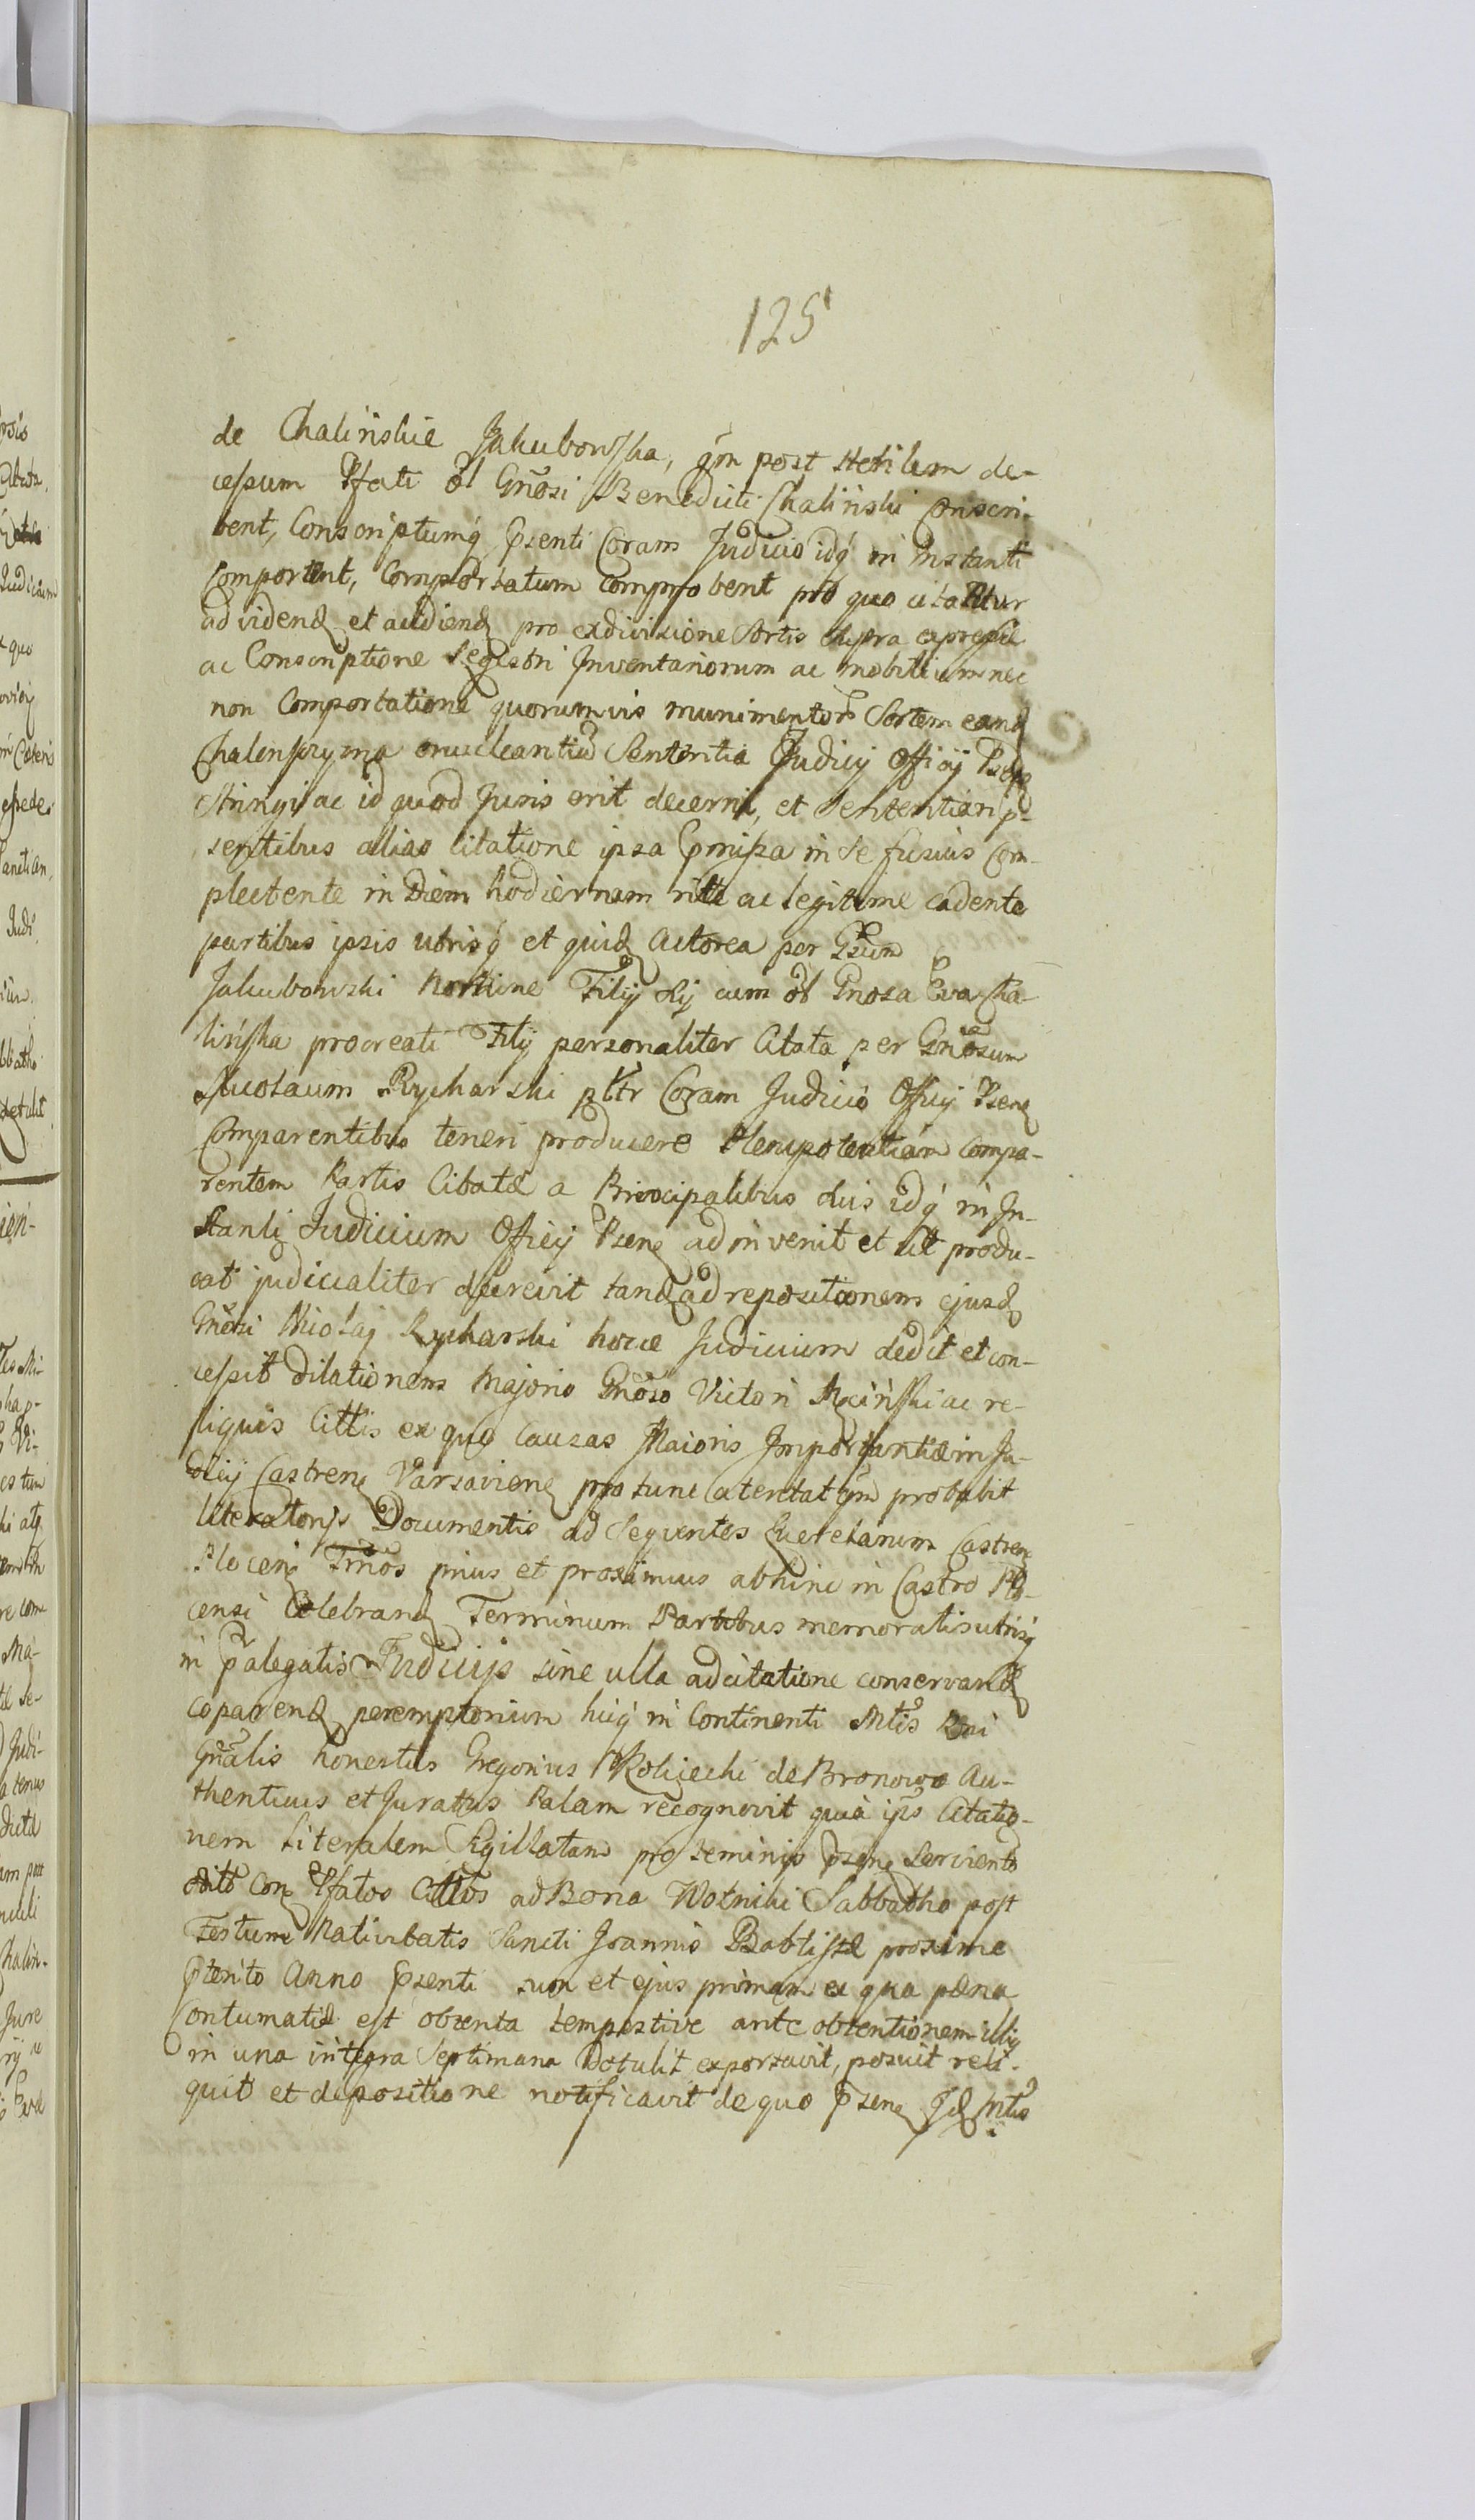 125
de Chalińskie Jakubowska, qm post sterilem de-
cessum Pfati ol Gnosi Benedicti Chaliński conscri-
bent, Conscriptumq Psenti Coram Judicio idq in Instanti
comportent, Comportatum comprobent pro quo citantur
ad videnq et audienq pro exdivisione Sortis supra expressæ
ac Conscriptione Regestri Inventariorum ac mobilium nec
non Comportatione quorumvis munimentor Sortem eanq
enucleantiu Sententia Judicij Officij Psenq
stringi ac id quod Juris erit decerni, et Sententiari p-
sentibus alias Citatione ipsa Pmissa in se fusius com-
plectente in Diem hodiernam ritte ac legitime cadente
partibus ipsis utrisq et quidq Actorea per Gsum
Jakubowski Nomine Filij sui cum ol Gnosa Eva Cha-
lińska procreati Filij personaliter Citata per Gnosum
Nicolaum Rycharski pltr Coram Judicio Officij Psenq
Comparentibus teneri producere Plenipotentiam compa-
rentem Partis Citatæ a Principalibus suis idq in In-
stanti Judicium Officij Psenq adinvenit et ut produ-
cat judicialiter decrevit tandq ad repositionem ejusdq
Gnosi Nicolaj Rycharski hocce Judicium dedit et con-
cessit dilationem Majoris Gnoso Victori ac re-
liquis Cittis ex quo Causas Maioris Importantiæ in Ju-
dicij Castrenq Varsavienq pro tunc atentat qm probabit
literatorijs Documentis ad Sequentes Querelarum Castrenq
Plocenq Tmos prius et proximius abhinc in Castro Plo-
censi Celebranq Terminum Partibus memoratis utrisq
in Palegatis Judicijs sine ulla adcitatione conservanq
coparenq peremptorium huiq in Continenti Mtis Rni
Gnalis honestus Gregorius de Bronowo Au-
thenticus et Juratus Palam recognovit quia ips Citatio-
nem Literalem Sigillatam pro terminis psenq Serviento
edito Conq Pfatos Cittos ad Bona Wotniki Sabbatho post
Festum Nativitatis Sancti Joannis Baptistæ proxime
Pterito Anno Psenti sum et ejus primam ex qua pæna
Contumatiæ est obtenta tempestive ante obtentionem illiq
in una integra Septimana Detulit exportavit, posuit reli-
quit et depositione notificavit de quo Psenq Idq Mtis